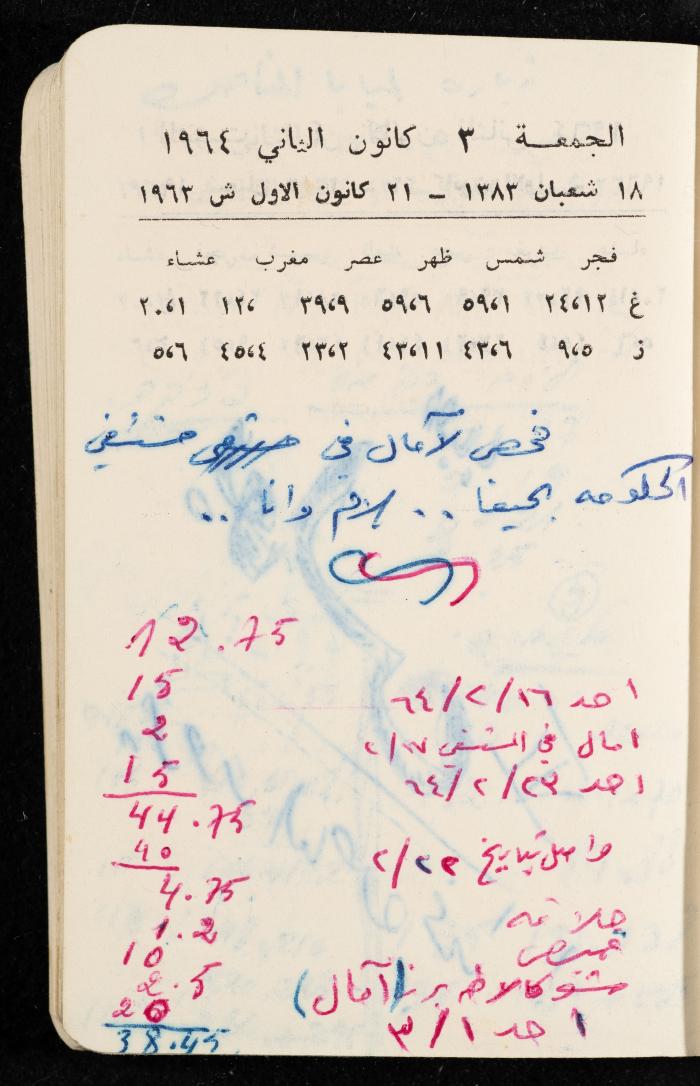 الجمعـــة ٣ كانون الثاني ١٩٦٤
١٨ شعبان ١٣٨٣ — ٢١ كانون الاول ش ١٩٦٣
فجر شمس ظهر عصر مغرب عشاء
غ ٢٤،١٢ ٥٩،١ ٥٩،٦ ٣٩،٩ ١٢، ٢٠،١
ز ٩،٥ ٤٣،٦ ٤٣،١١ ٢٣،٢ ٤٥،٤ ٥،٦
فحص لآمال في مستشفى
الحكومه بحيفا .. وانا ..
12.75
15 احد ٦٤/٢/١٦
2 امال في المستشفى ٢/١٧
15 احد ٦٤/٢/٢٣
44.75
40 واصل بتاريخ ٢/٢٣
4.75
1.2 حلاقه
10 قميص
2.5 (آمال)
20 احد ٣/١
38.45